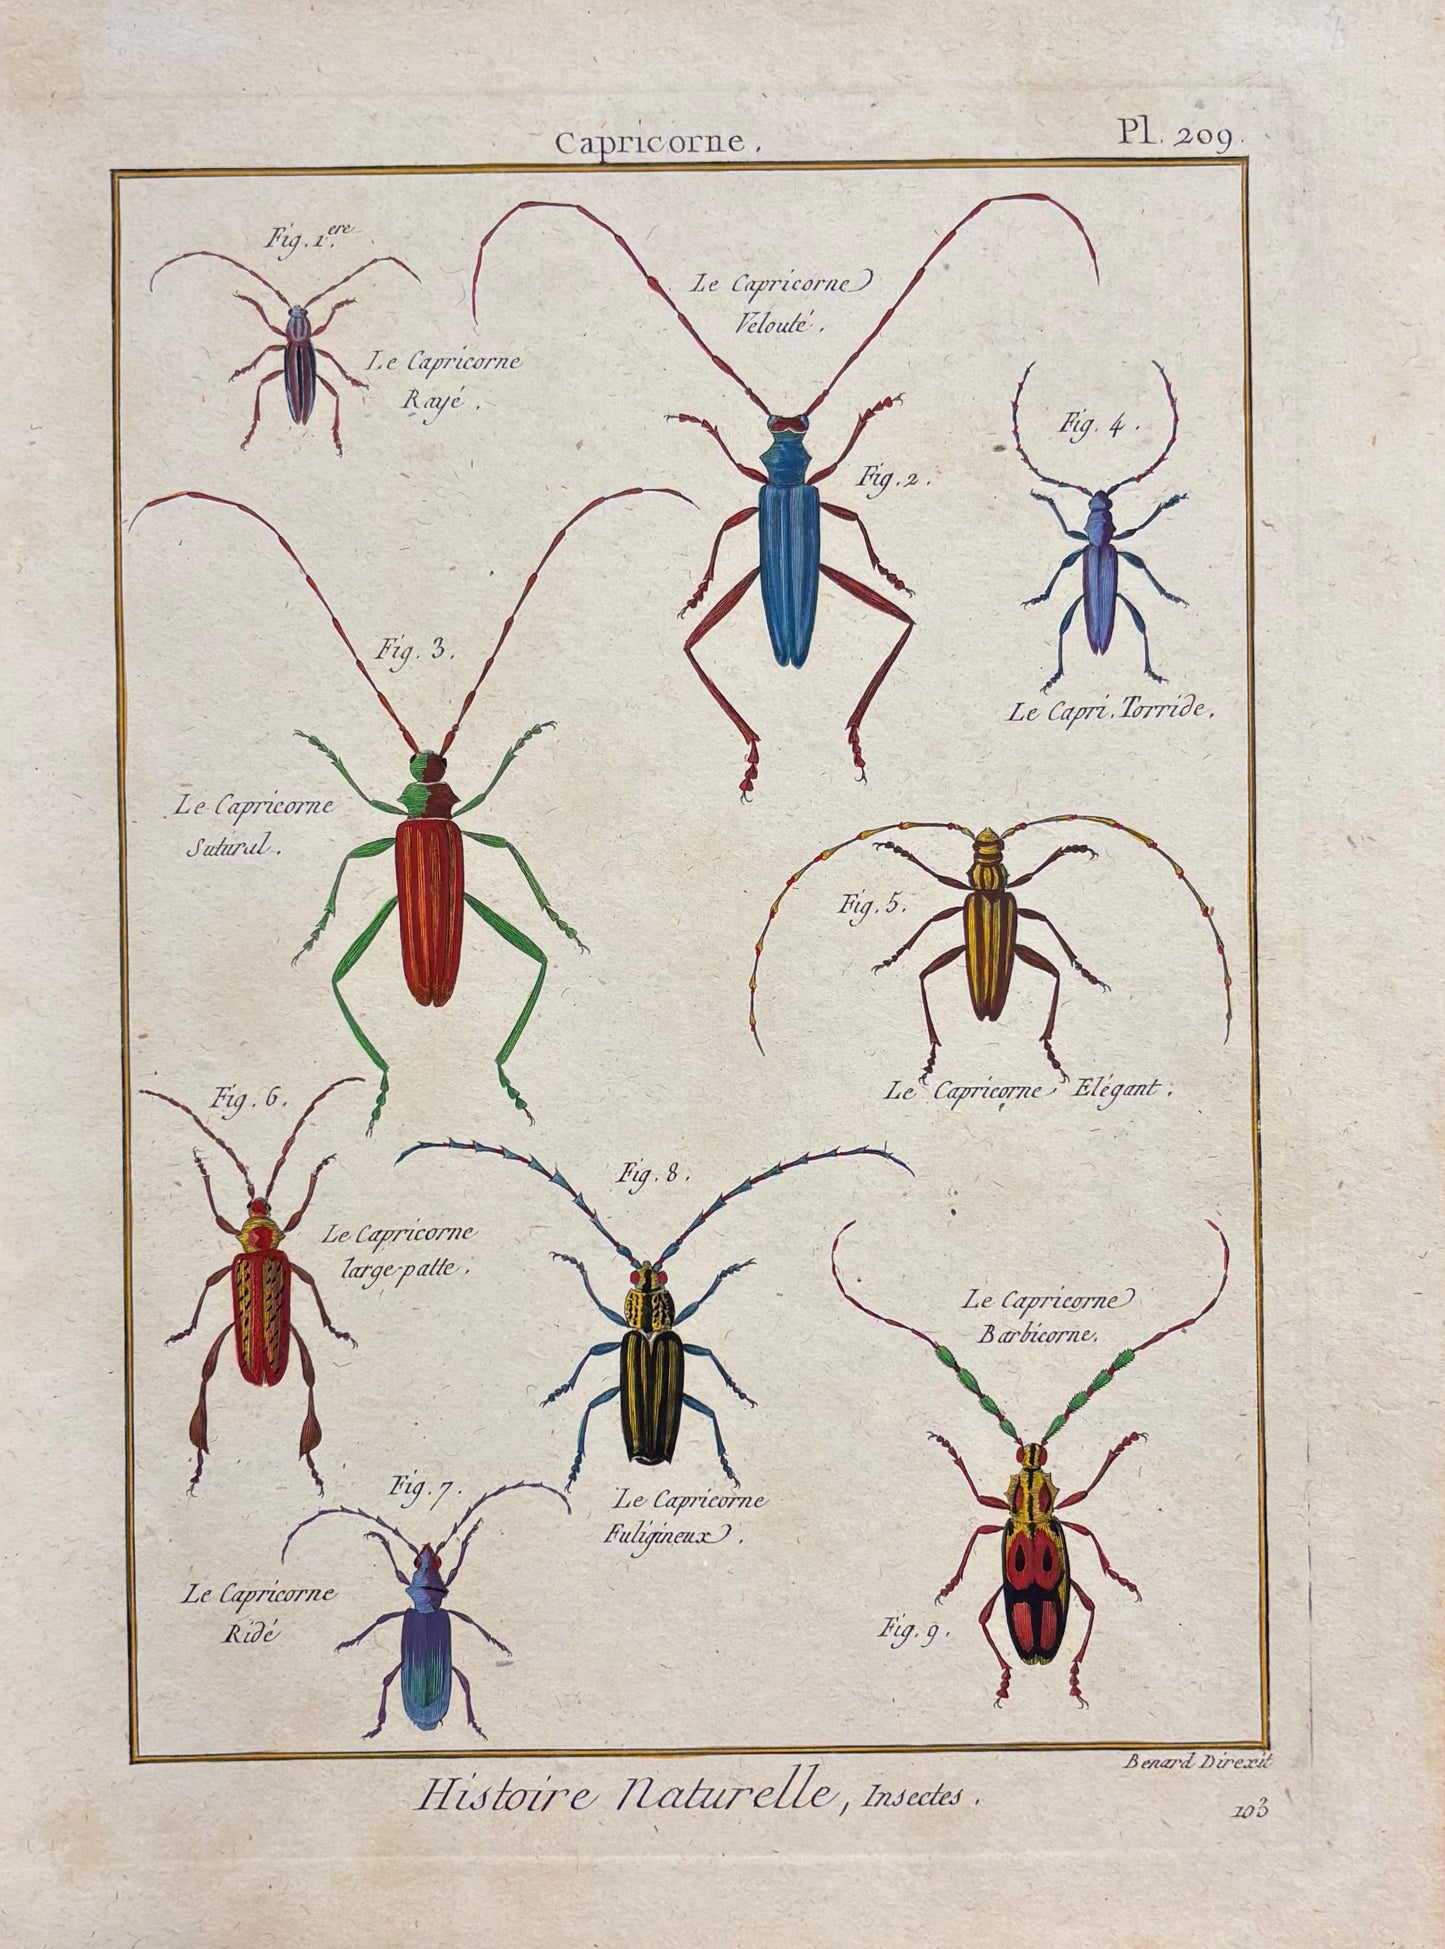 Capricorne.
Pl. 209.
Fig. 1.ere
Le Capricorne
Rayé.
Le Capricorne
Velouté.
Fig. 2.
Fig. 4.
Le Capri. Torride.
Fig. 3.
Le Capricorne
Sutural.
Fig. 5.
Le Capricorne Elégant.
Fig. 6.
Le Capricorne
large-patte.
Fig. 8.
Le Capricorne
Fuligineux.
Fig. 7.
Le Capricorne
Ridé
Le Capricorne
Barbicorne.
Fig. 9.
Benard Direxit
Histoire Naturelle, Insectes.
103